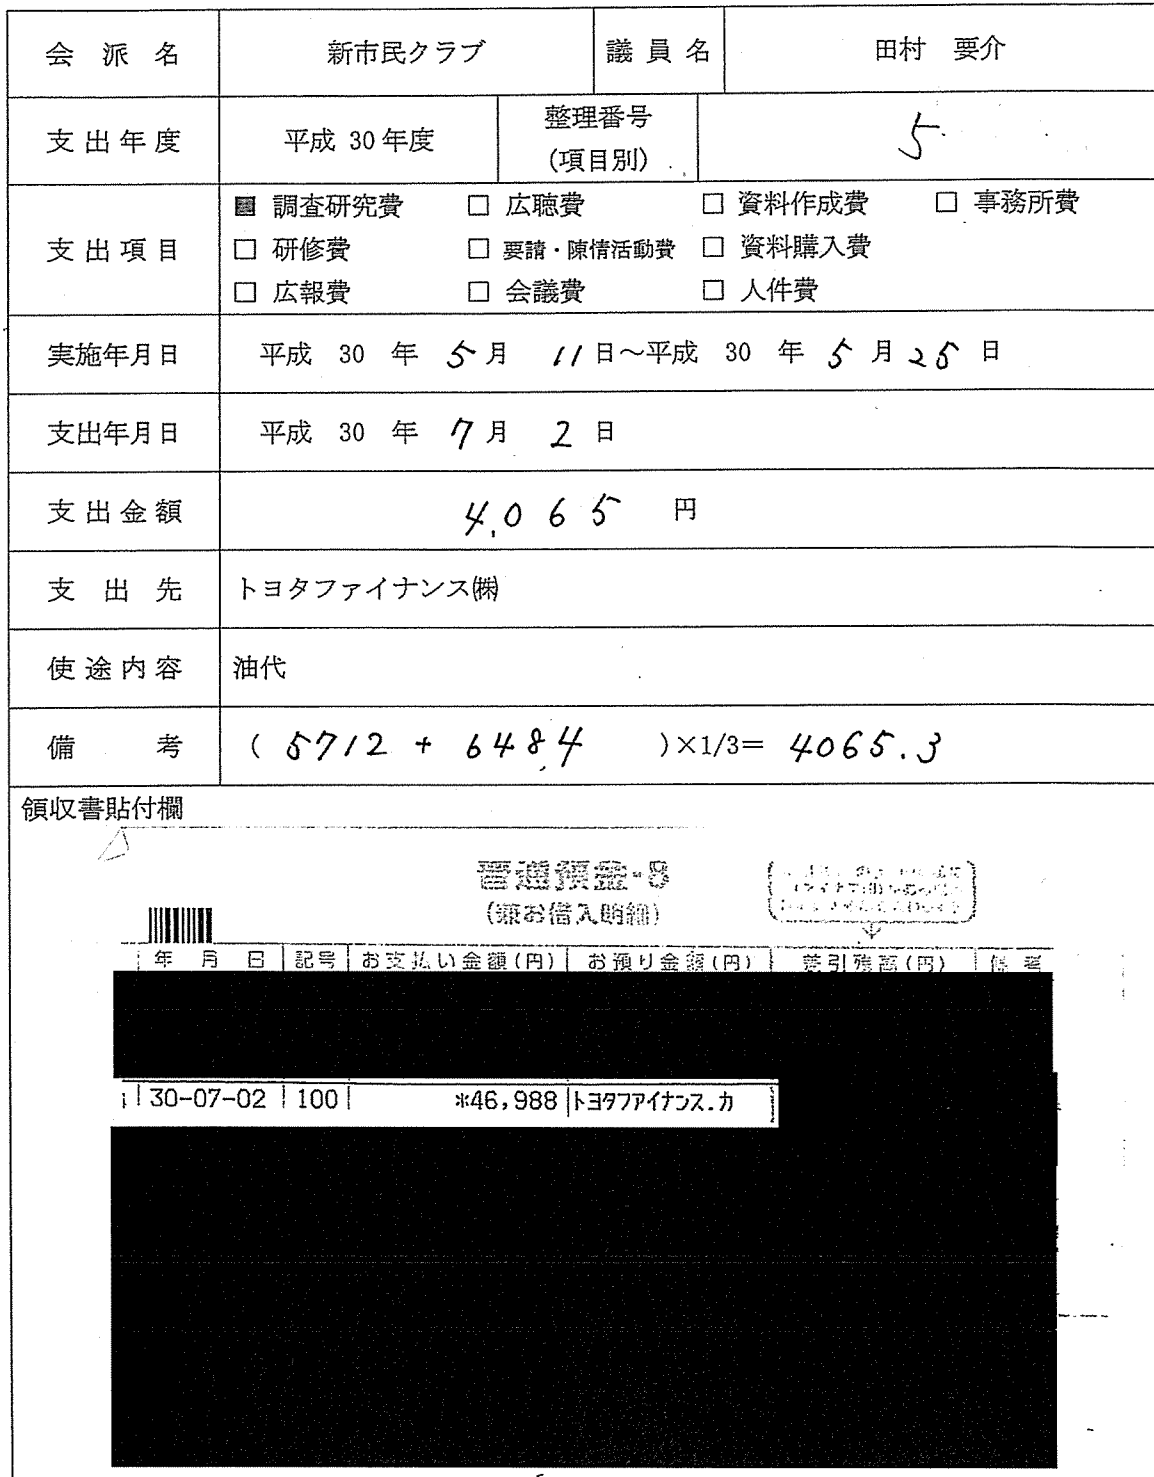 会派名 新市民クラブ 議員名 田村 要介
支出年度 平成 30 年度 整理番号(項目別) 5
支出項目 ■ 調査研究費 □ 広聴費 □ 資料作成費 □ 事務所費
□ 研修費 □ 要請・陳情活動費 □ 資料購入費
□ 広報費 □ 会議費 □ 人件費
実施年月日 平成 30 年 5月 11日～平成 30 年 5月25日
支出年月日 平成 30 年 7月 2日
支出金額 4,065 円
支出先 トヨタファイナンス㈱
使途内容 油代
備考 (5712 + 6484)×1/3= 4065.3
領収書貼付欄
普通預金-8
(兼お借入明細)
年 月 日 記号 お支払い金額(円) お預り金額(円) 差引残高(円) 備考
30-07-02 100 *46,988 トヨタフアイナンス.カ